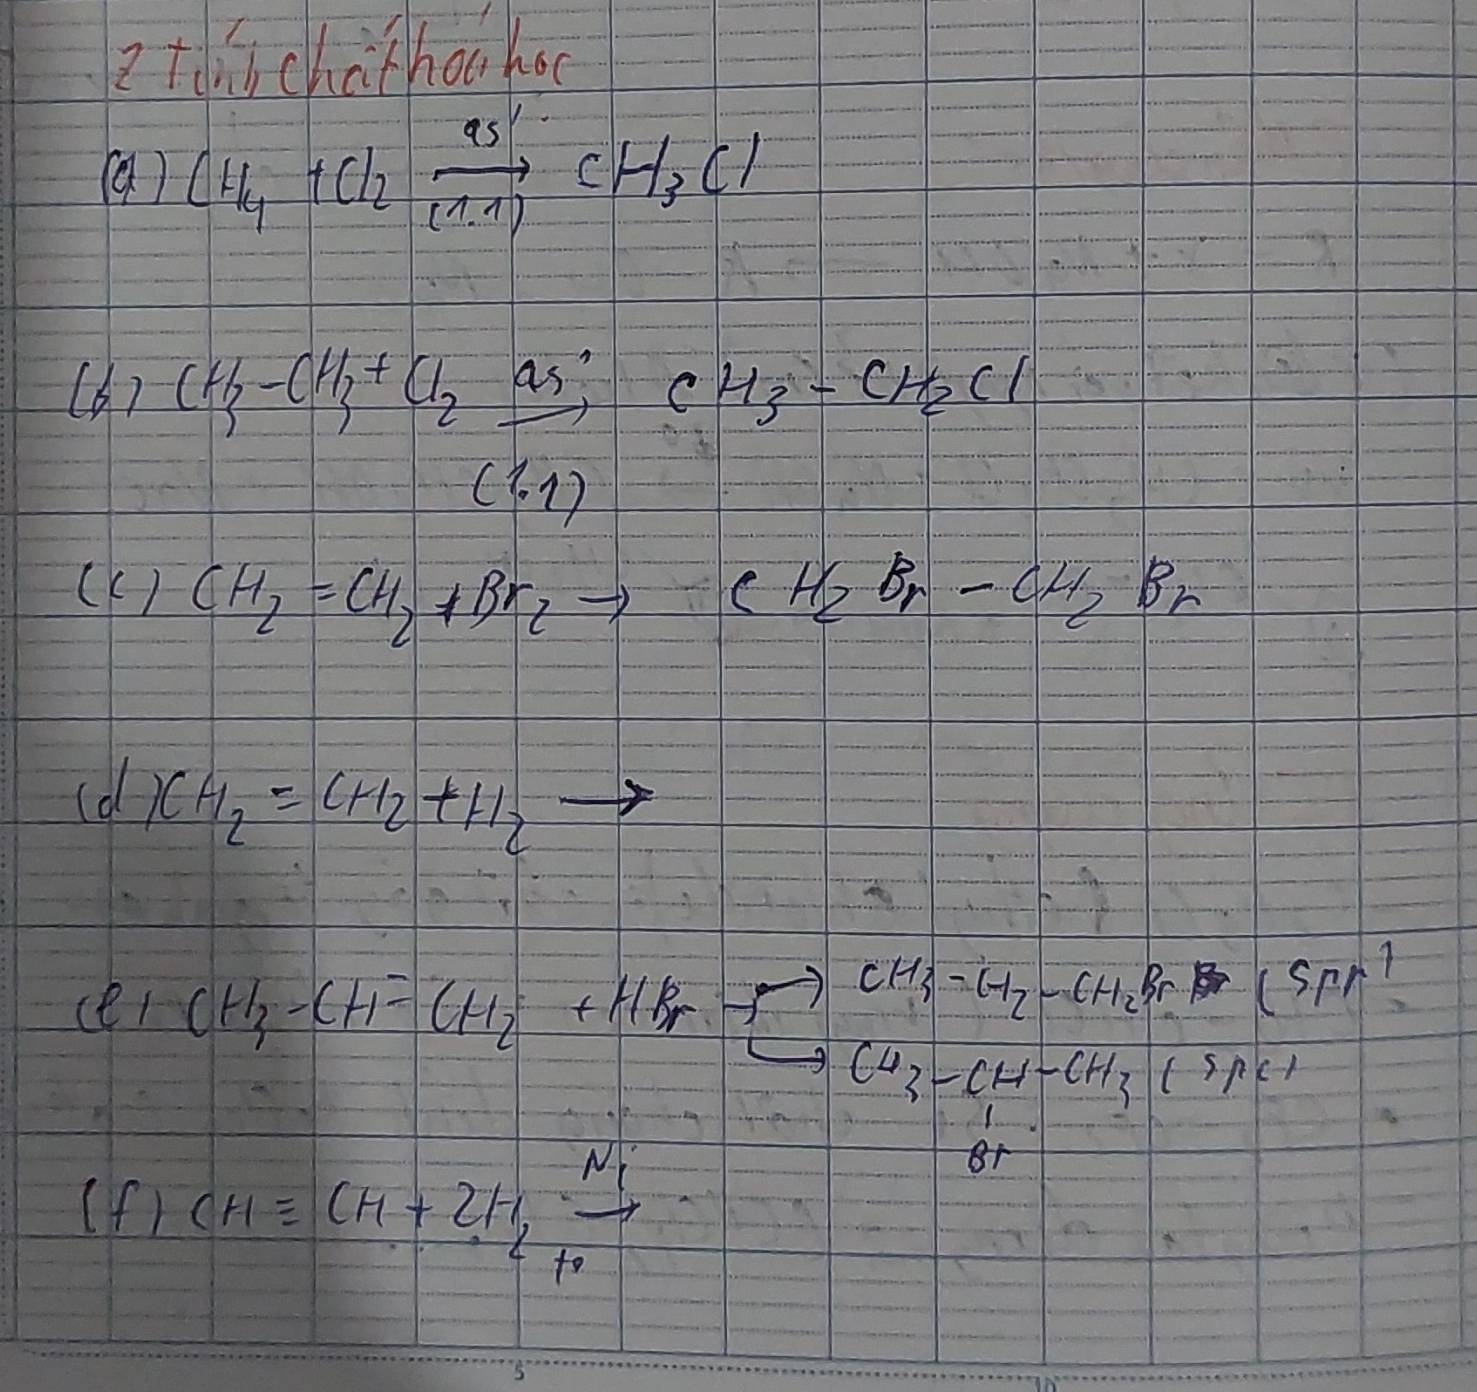 2 tính chất hoá học
(a) CH4 + Cl2 as → (1.1) CH3Cl
(b) CH3-CH3 + Cl2 as → CH3-CH2Cl
(1.1)
(c) CH2=CH2 + Br2 → CH2Br-CH2Br
(d) CH2=CH2 + H2 →
(e) CH3-CH=CH2 + HBr → CH3-CH2-CH2Br (spp)
→ CH3-CH-CH3 (spc)
Br
(f) CH≡CH + 2H2 Ni → to
5
10